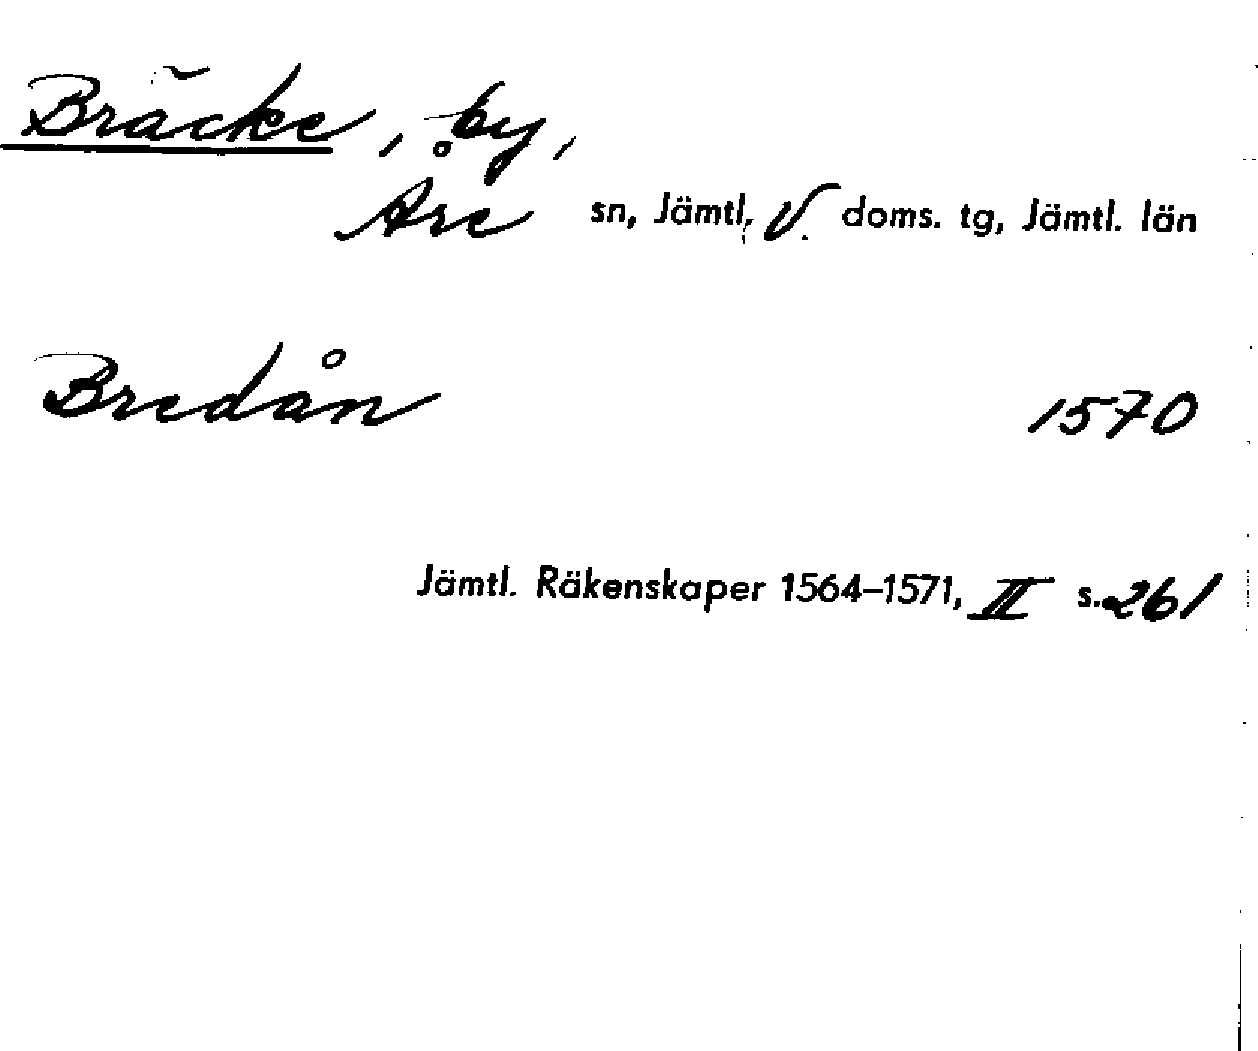 Bräcke, by,
Åre sn, Jämtl, V. doms. tg, Jämtl. län
Bredån 1570
Jämtl. Räkenskaper 1564–1571, II s. 261